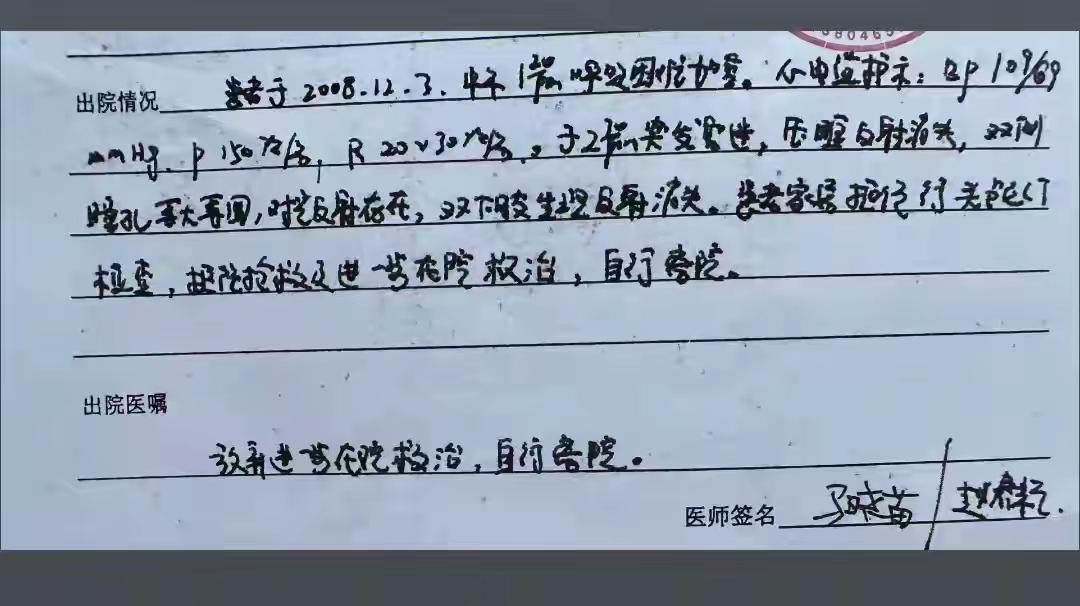 090460
出院情况 患者于2008.12.3.中午1 20 pm呼吸困难加重。心电监护示：Bp 109/69
mmHg. P 150次/分, R 20~30次/分, 于2 pm突发昏迷, 压眶反射消失, 双侧
瞳孔等大等圆, 对光反射存在, 双下肢生理反射消失。患者家属拒绝行头颅CT
检查, 拒绝抢救及进一步在院救治, 自行离院。
出院医嘱
放弃进一步在院救治, 自行离院。
医师签名 马晓苗 / 赵